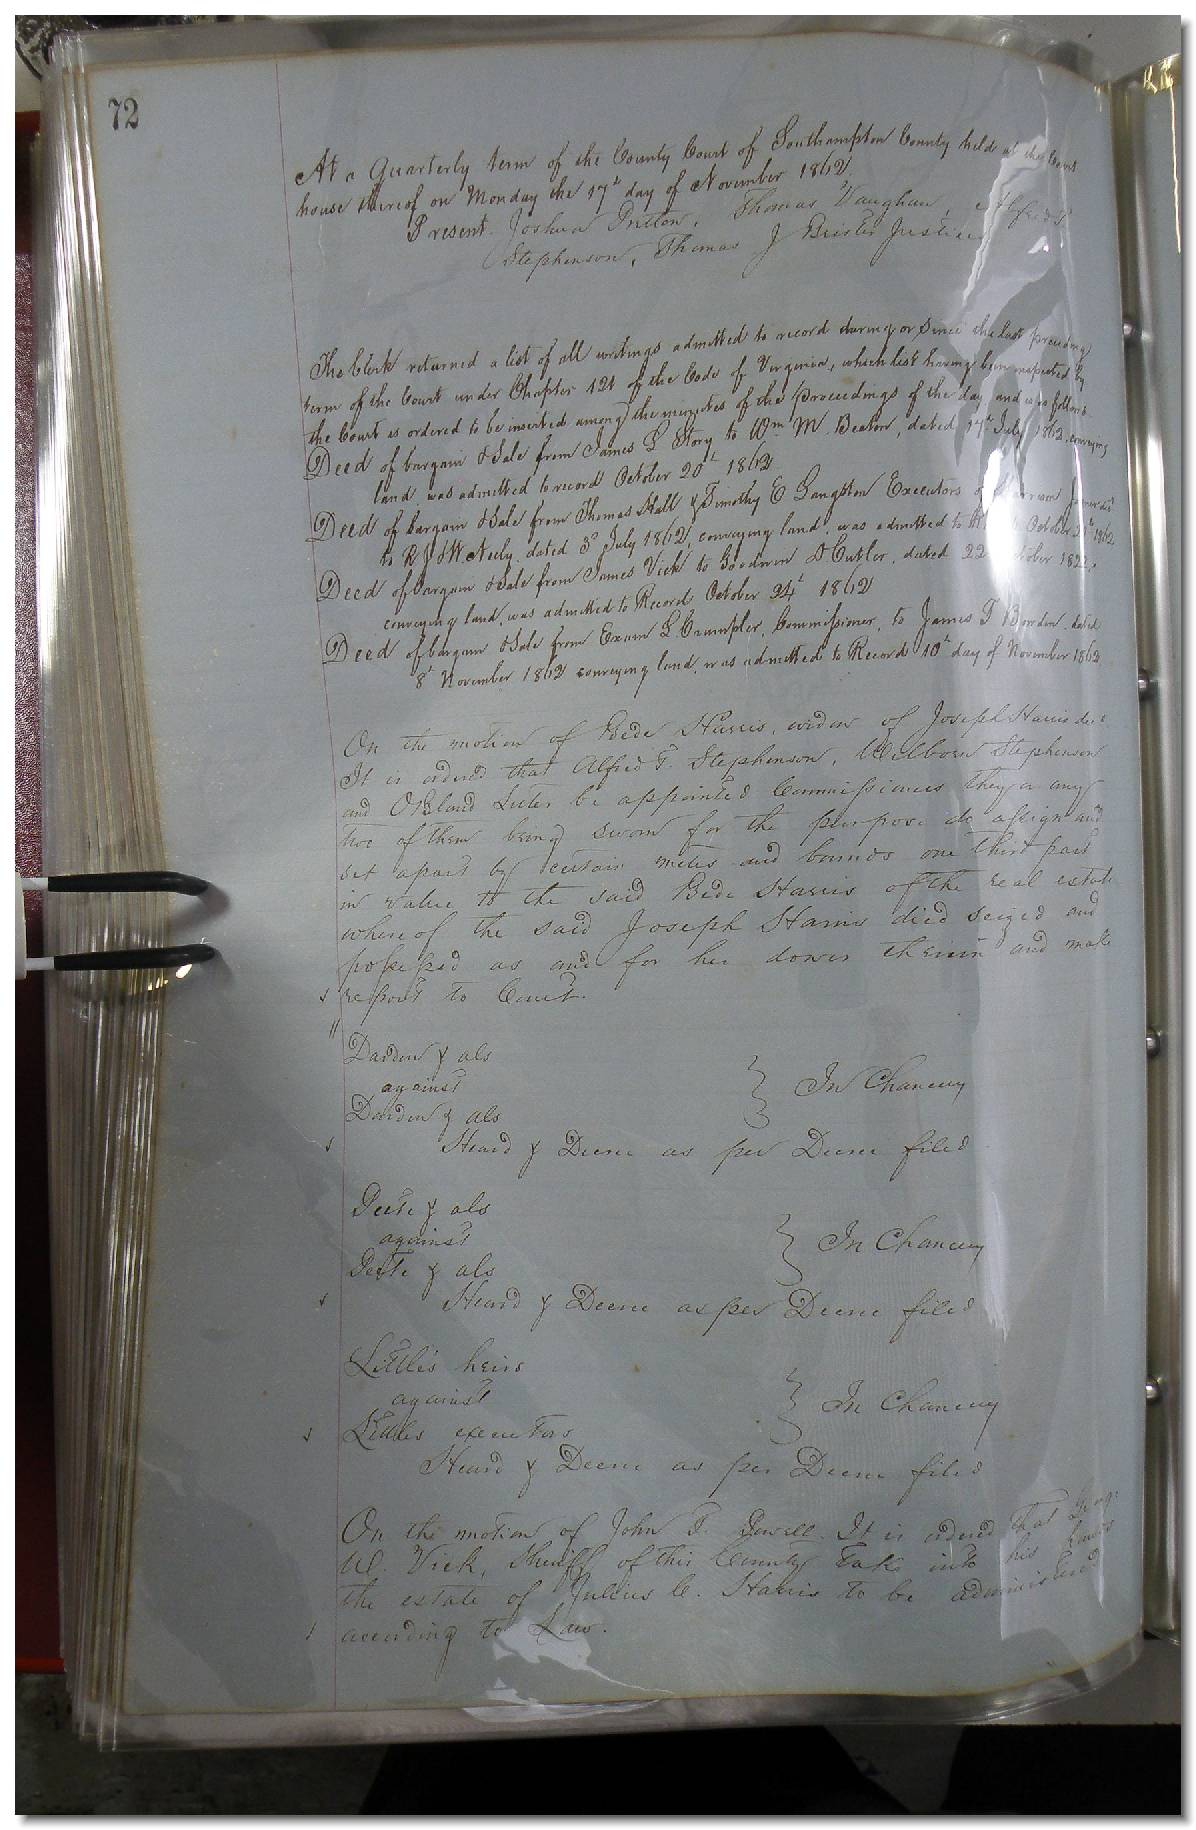 72
At a Quarterly term of the County Court of Southampton County held at the Court
house thereof on Monday the 17th day of November 1862
Present. Joshua Pretlow, Thomas Vaughan, Alfred
Stephenson, Thomas J Brister Justices
The Clerk returned a list of all writings admitted to record during or since the last preceding
term of the Court under Chapter 121 of the Code of Virginia, which list having been inspected by
the Court is ordered to be inserted among the minutes of the proceedings of the day and is as follows
Deed of bargain & Sale from James L Story to Wm M. Beaton, dated 17th July 1862 conveying
land was admitted to record October 20th 1862
Deed of bargain & Sale from Thomas Hall & Timothy E Langston Executors of
to R J W Neely dated 3d July 1862, conveying land, was admitted to October 21st 1862
Deed of bargain & Sale from James Vick to Goodwin D Cutler, dated 22 October 1822,
conveying land, was admitted to Record October 24th 1862
Deed of bargain & Sale from Exum L Crumpler, Commissioner, to James T Bowden, dated
8th November 1862 conveying land, was admitted to Record 10th day of November 1862
On the motion of Bede Harris, widow of Joseph Harris decd
It is ordered that Alfred T. Stephenson, Wilborn Stephenson
and Orland Liles be appointed Commissioners they or any
two of them being sworn for the purpose do assign and
set apart by certain metes and bounds one third part
in value to the said Bede Harris of the real estate
whereof the said Joseph Harris died seized and
possessed as and for her dower therein and make
report to Court.
Darden & als
against
Darden & als
In Chancery
Heard & Decree as per Decree filed
Peete & als
against
Peete & als
In Chancery
Heard & Decree as per Decree filed
Little's heirs
against
Littles executors
In Chancery
Heard & Decree as per Decree filed
On the motion of John T. Sewell. It is ordered that
W. Vick, Sheriff of this County take into his hands
the estate of Julius C. Harris to be administered
according to Law.